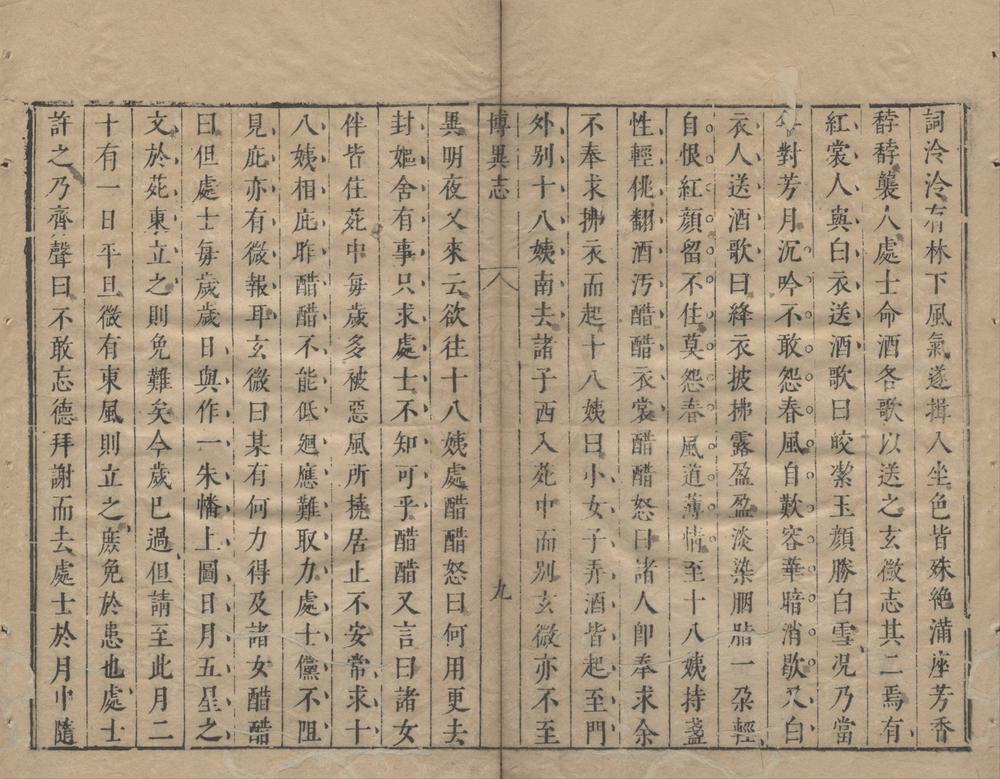 詞泠泠有林下風氣遂揖入坐色皆殊絶滿座芳香
馞馞襲人處士命酒各歌以送之玄微志其二焉有
紅裳人與白衣送酒歌曰皎潔玉顔勝白雪况乃當
年對芳月沉吟不敢怨春風自歎容華暗消歇又白
衣人送酒歌曰絳衣披拂露盈盈淡染胭脂一朶輕
自恨紅顔留不住莫怨春風道薄情至十八姨持盞
性輕佻翻酒汚醋醋衣裳醋醋怒曰諸人即奉求余
不奉求拂衣而起十八姨曰小女子弄酒皆起至門
外别十八姨南去諸子西入苑中而别玄微亦不至
博異志 九
異明夜又來云欲往十八姨處醋醋怒曰何用更去
封嫗舍有事只求處士不知可乎醋醋又言曰諸女
伴皆住苑中毎歲多被惡風所撓居止不安常求十
八姨相庇昨醋醋不能低廻應難取力處士儻不阻
見庇亦有微報耳玄微曰某有何力得及諸女醋醋
曰但處士毎歲歲日與作一朱幡上圖日月五星之
文於苑東立之則免難矣今歲已過但請至此月二
十有一日平旦微有東風則立之庻免於患也處士
許之乃齊聲曰不敢忘德拜謝而去處士於月中隨